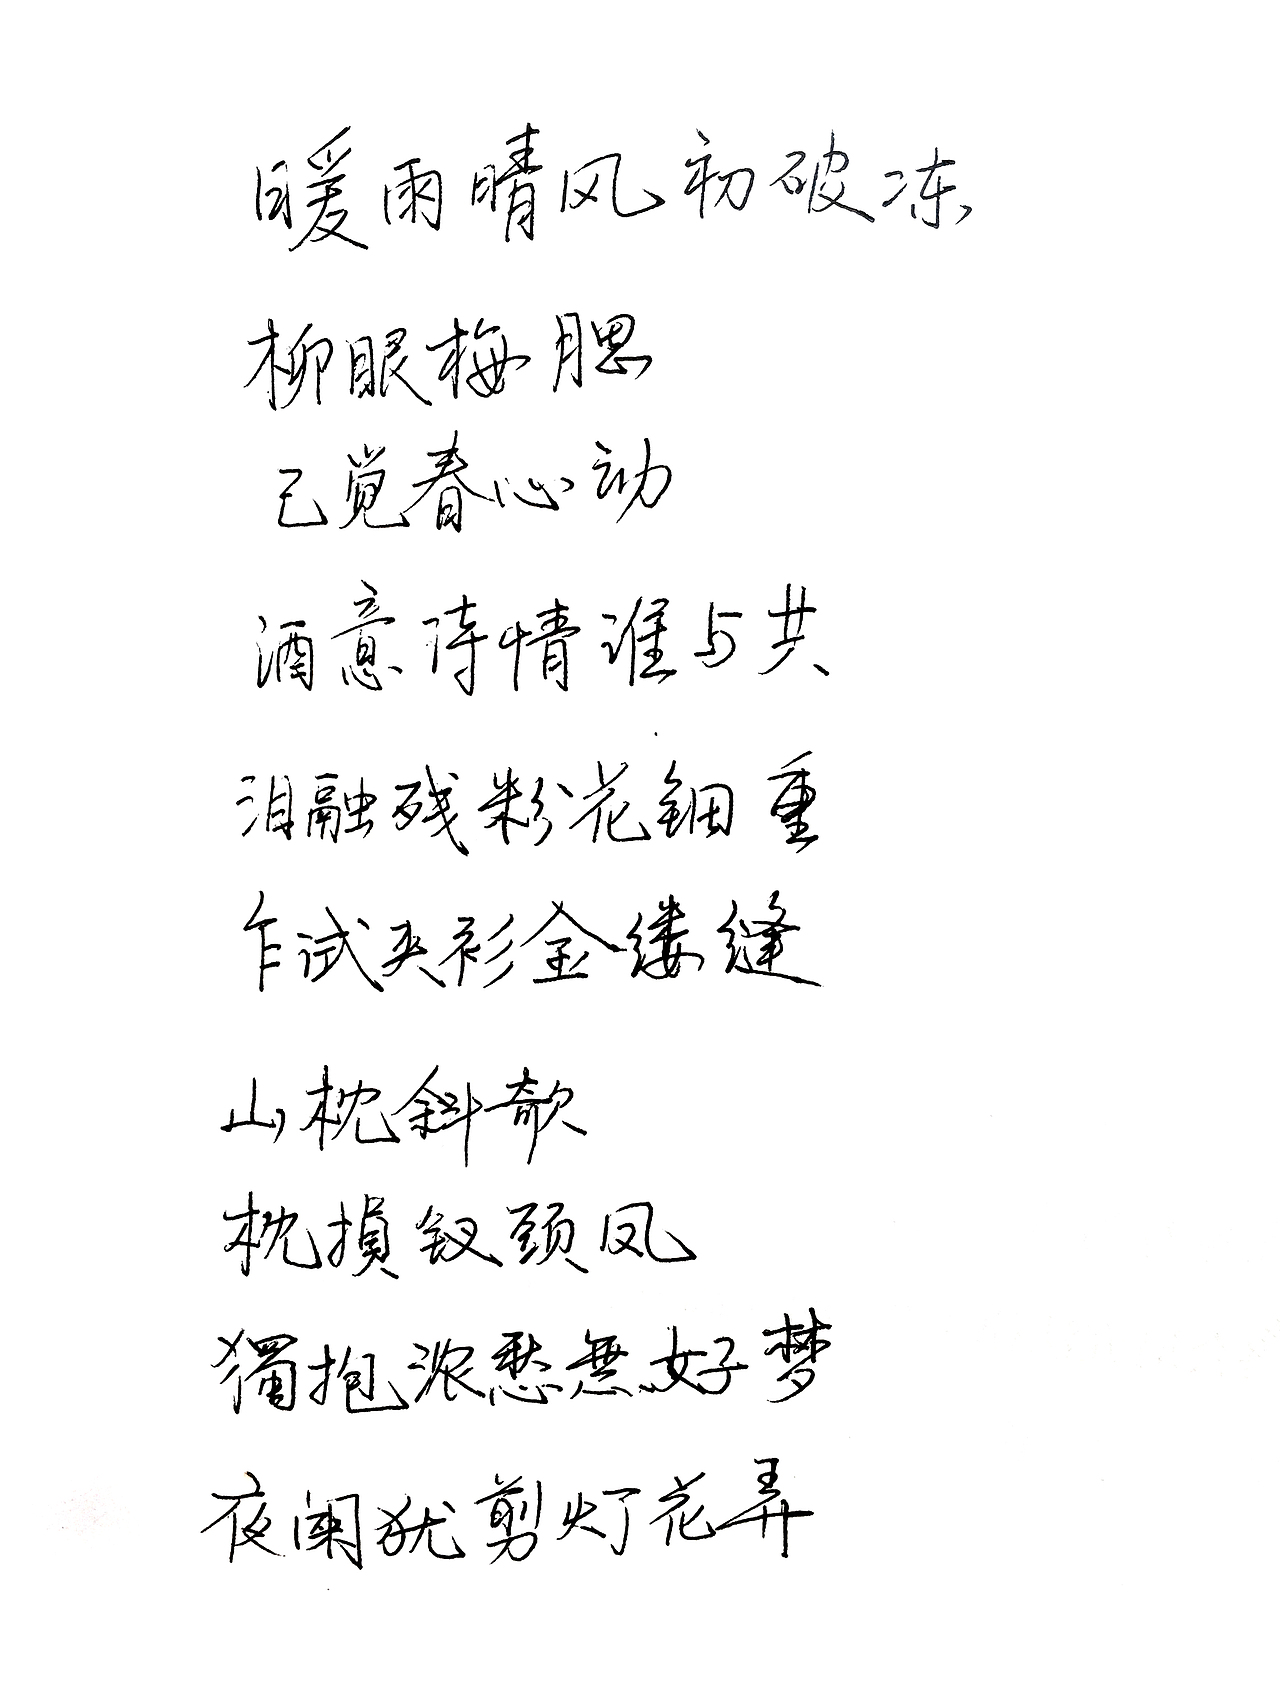 暖雨晴风初破冻
柳眼梅腮
已觉春心动
酒意诗情谁与共
泪融残粉花钿重
乍试夹衫金缕缝
山枕斜欹
枕損钗頭凤
獨抱浓愁無好梦
夜阑犹剪灯花弄